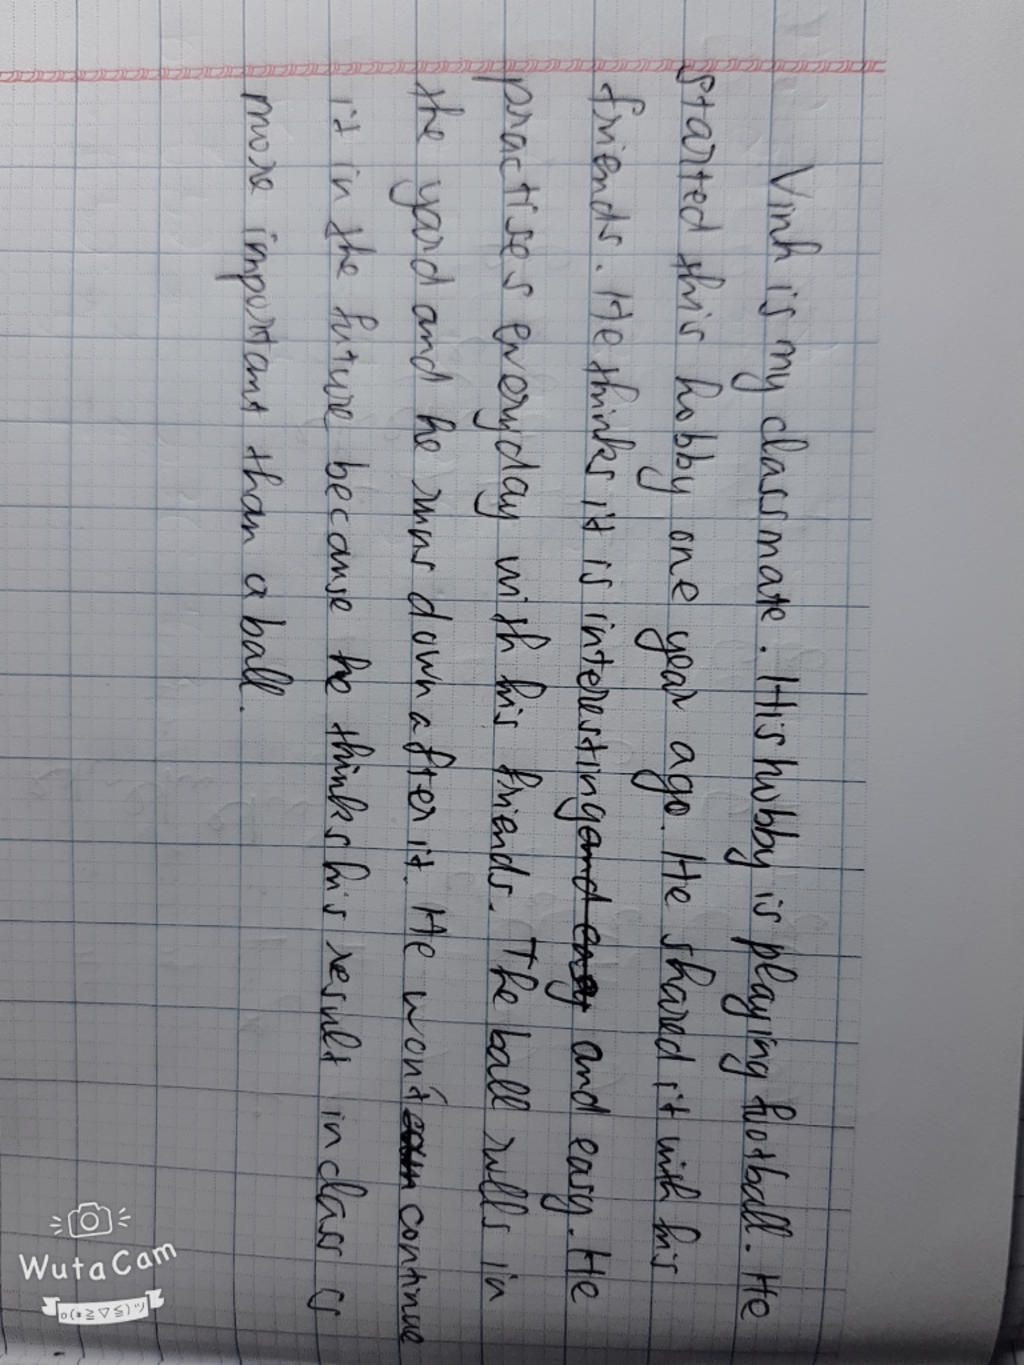 Vinh is my classmate. His hobby is playing football. He
started this hobby one year ago. He shared it with his
friends. He thinks it is interesting and easy and easy. He
practises everyday with his friends. The ball rolls in
the yard and he runs down after it. He won't continue
it in the future because he thinks his result in class is
more important than a ball.
WutaCam
o(*≧▽≦)ツ